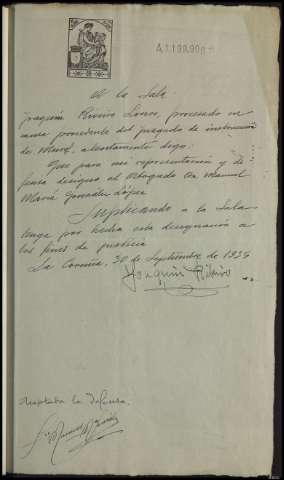 A1199.90
A la Sala
Joaquín Riveiro procesado en
causa procedente del juzgado de instrucción
de atentamente digo:
Que para mi representación y de-
fensa designo al Abogado Don Manuel
María González López
Suplicando a la Sala
tenga por hecha esta designación a
los fines de justicia
La Coruña, 30 de Septiembre de 1935
Joaquín Ribeiro
Aceptaba la defensa.